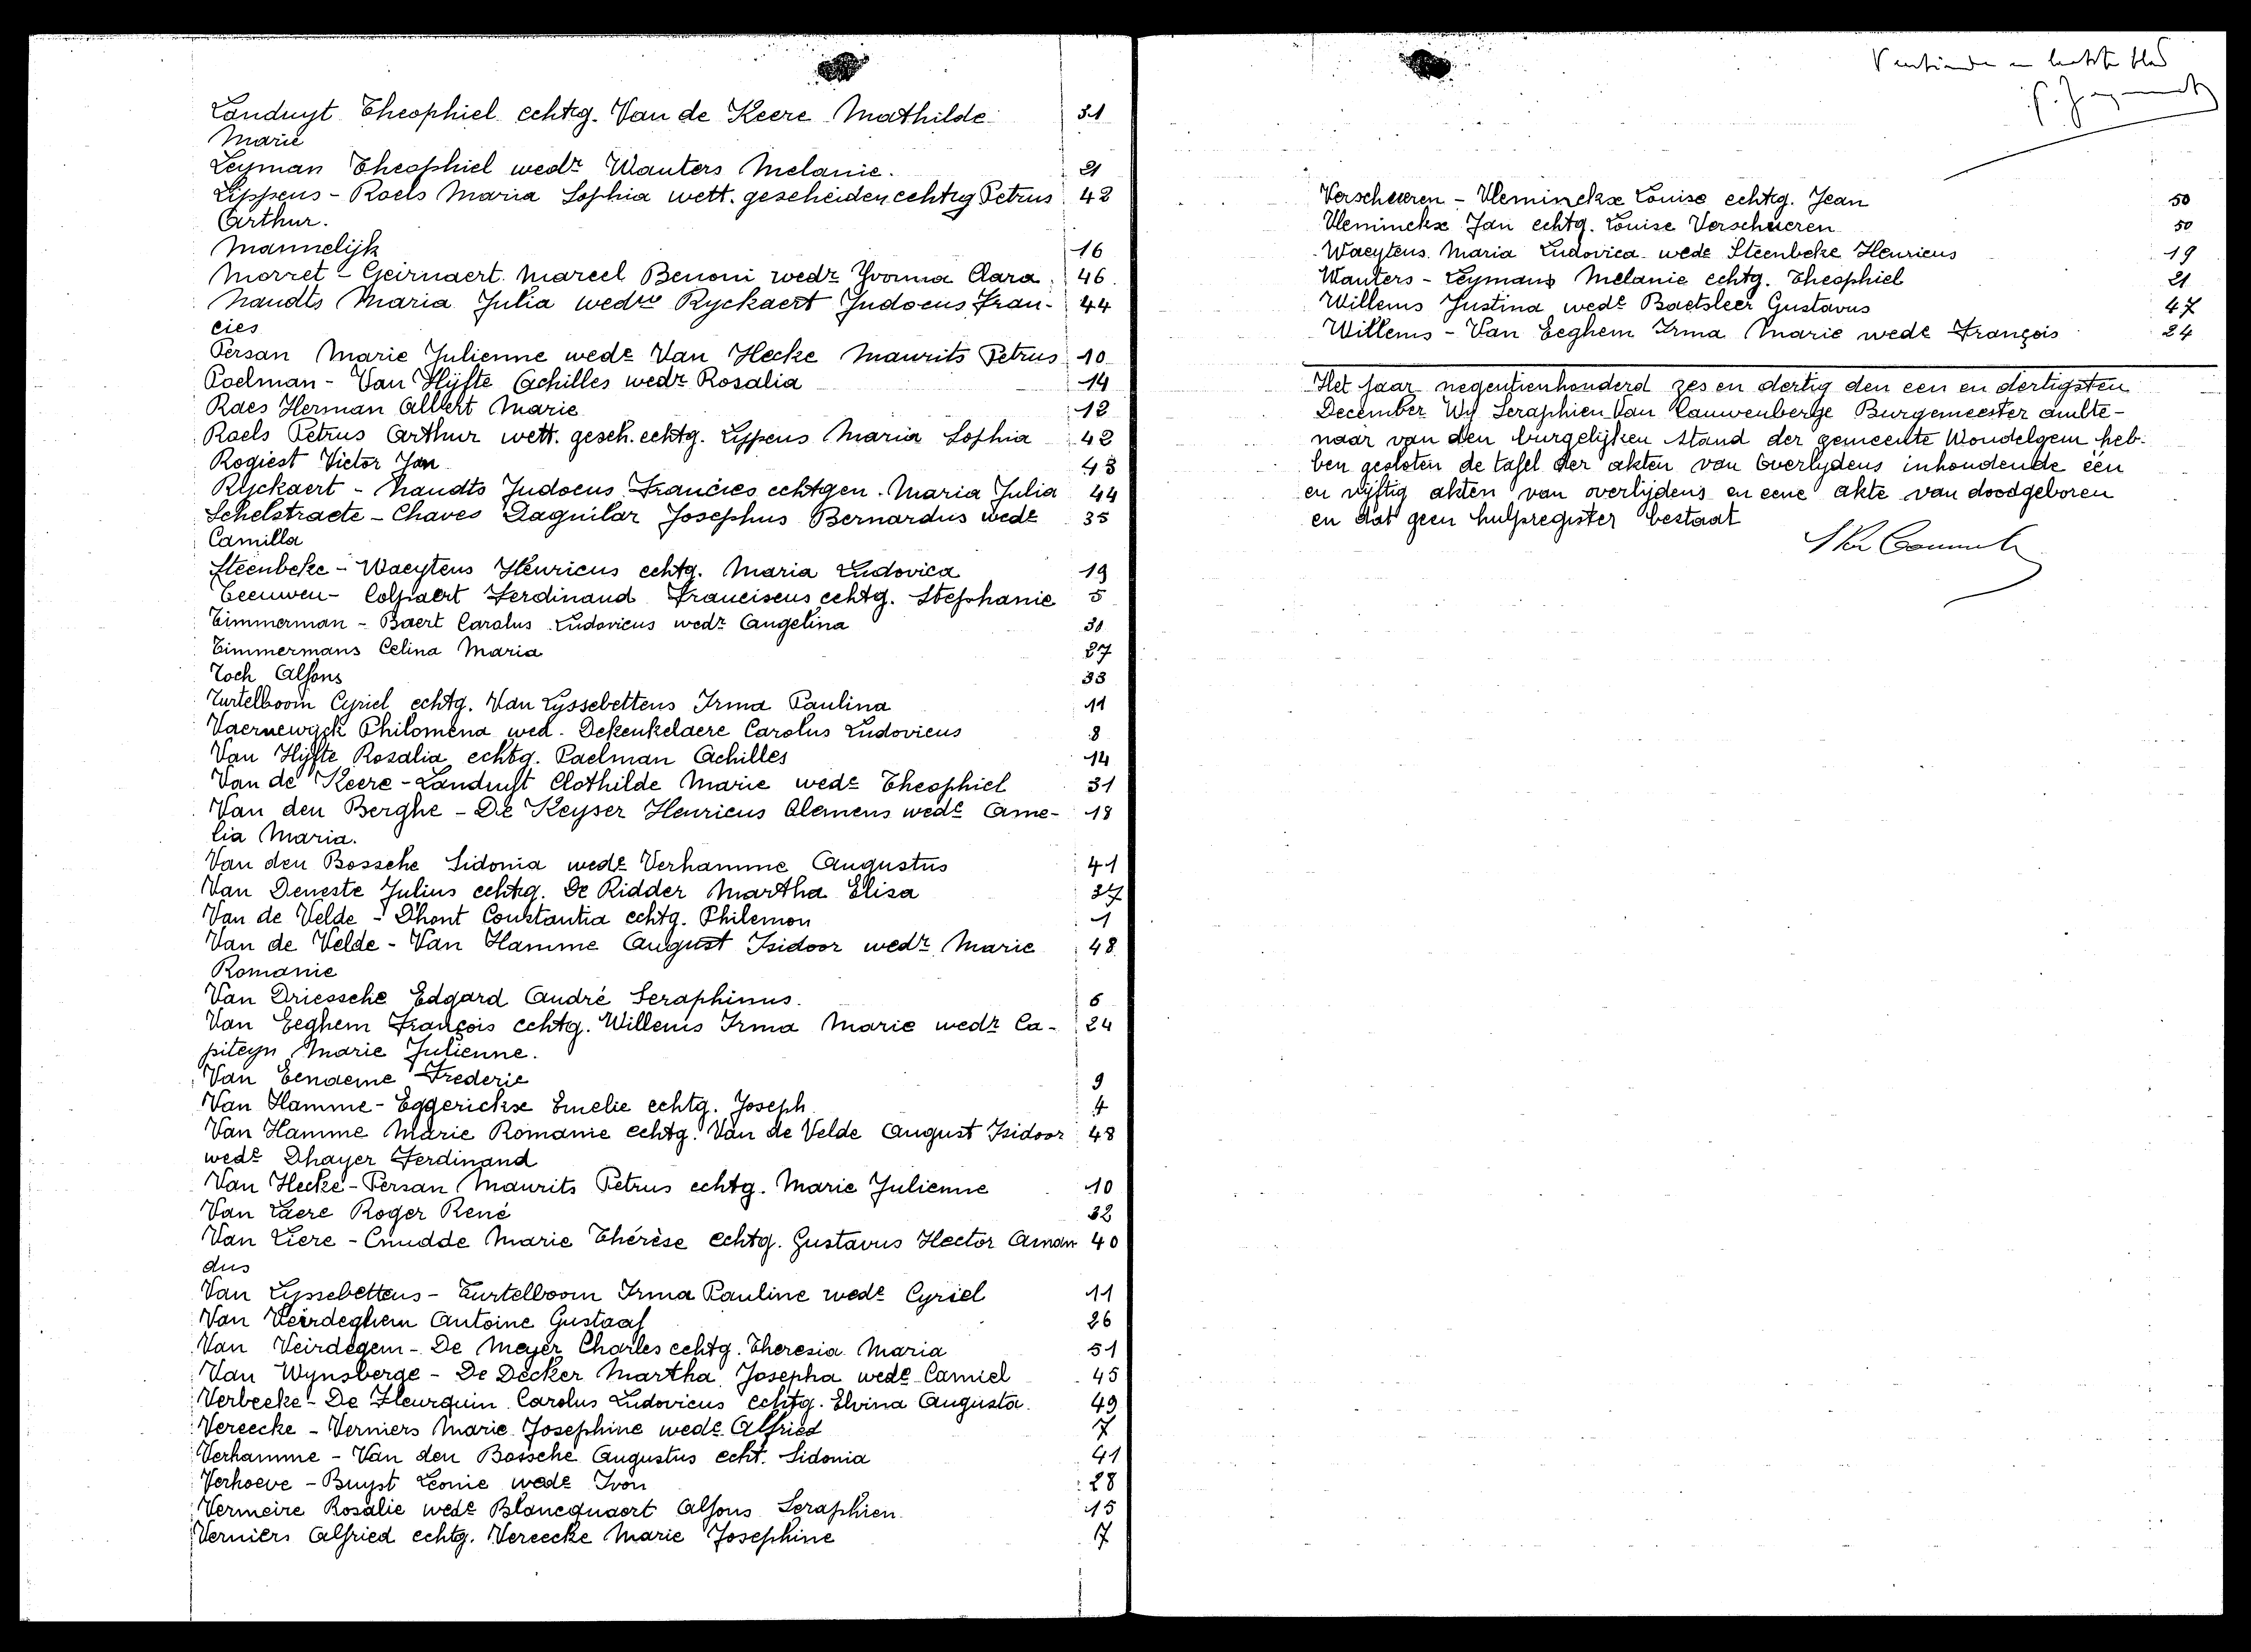 Landuyt Theophiel echtg. Van de Keere Mathilde 31
Marie
Leyman Theophiel wedr Wauters Melanie. 21
Lippens - Roels Maria Sophia wett. gescheiden echtg Petrus 42
Arthur.
Mannelijk 16
Morret - Geirnaert Marcel Benoni wedr Yvonna Clara. 46
Naudts Maria Julia wedwe Ryckaert Judocus Fran- 44
cies
Persan Marie Julienne wede Van Hecke Maurits Petrus 10
Poelman - Van Hijfte Achilles wedr Rosalia 14
Raes Herman Albert Marie 12
Roels Petrus Arthur wett. gesch. echtg. Lippens Maria Sophia 42
Rogiest Victor Jan 43
Ryckaert - Naudts Judocus Francies echtgen. Maria Julia 44
Schelstraete - Chaves Daguilar Josephus Bernardus wede 35
Camilla
Steenbeke - Waeytens Henricus echtg. Maria Ludovica 19
Teeuwen - Colpaert Ferdinand Franciscus echtg. Stephanie 5
Timmerman - Baert Carolus Ludovicus wedr Angelina 30
Timmermans Celina Maria 27
Toch Alfons 33
Turtelboom Cyriel echtg. Van Lyssebettens Irma Paulina 11
Vaernewyck Philomena wed. Dekeukelaere Carolus Ludovicus 8
Van Hijfte Rosalia echtg. Paelman Achilles 14
Van de Keere - Landuyt Clothilde Marie wede Theophiel 31
Van den Berghe - De Keyser Henricus Clemens wede Ame- 18
lia Maria.
Van den Bossche Sidonia wede Verhamme Augustus 41
Van Deneste Julius echtg. De Ridder Martha Elisa 37
Van de Velde - D'hont Constantia echtg. Philemon 1
Van de Velde - Van Hamme August Isidoor wedr Marie 48
Romanie
Van Driessche Edgard André Seraphinus. 6
Van Eeghem François echtg. Willems Irma Marie wedr Ca- 24
piteyn Marie Julienne.
Van Eenaeme Frederic 9
Van Hamme - Eggerickx Emelie echtg. Joseph 4
Van Hamme Marie Romanie echtg. Van de Velde August Isidoor 48
wede Dhayer Ferdinand
Van Hecke - Persan Maurits Petrus echtg. Marie Julienne 10
Van Laere Roger René 32
Van Liere - Cnudde Marie Thérèse echtg. Gustavus Hector Aman 40
dus
Van Lyssebettens - Turtelboom Irma Pauline wede Cyriel 11
Van Veirdeghem Antoine Gustaaf 26
Van Veirdegem - De Meyer Charles echtg. Theresia Maria 51
Van Wynsberge - De Decker Martha Josepha wede Camiel 45
Verbeeke - De Fleurquin Carolus Ludovicus echtg. Elvina Augusta. 49
Vereecke - Verniers Marie Josephine wede Alfried 7
Verhamme - Van den Bossche Augustus echt. Sidonia 41
Verhoeve - Buyst Leonie wede Ivon 28
Vermeire Rosalie wede Blancquaert Alfons Seraphien 15
Verniers Alfried echtg. Vereecke Marie Josephine 7
Veertiende en laatste blad
Verscheeren - Vleminckx Louise echtg. Jean 50
Vleminckx Jan echtg. Louise Verscheeren 50
Waeytens Maria Ludovica wede Steenbeke Henricus 19
Wauters - Leymans Melanie echtg. Theophiel 21
Willems Justina wede Baetsleer Gustavus 47
Willems - Van Eeghem Irma Marie wede François 24
Het jaar negentienhonderd zes en dertig den een en dertigsten
December Wij Seraphien Van Cauwenberge Burgemeester ambte-
naar van den burgelijken stand der gemeente Wondelgem heb-
ben gesloten de tafel der akten van Overlijdens inhoudende één
en vijftig akten van overlijdens en eene akte van doodgeboren
en dat geen hulpregister bestaat